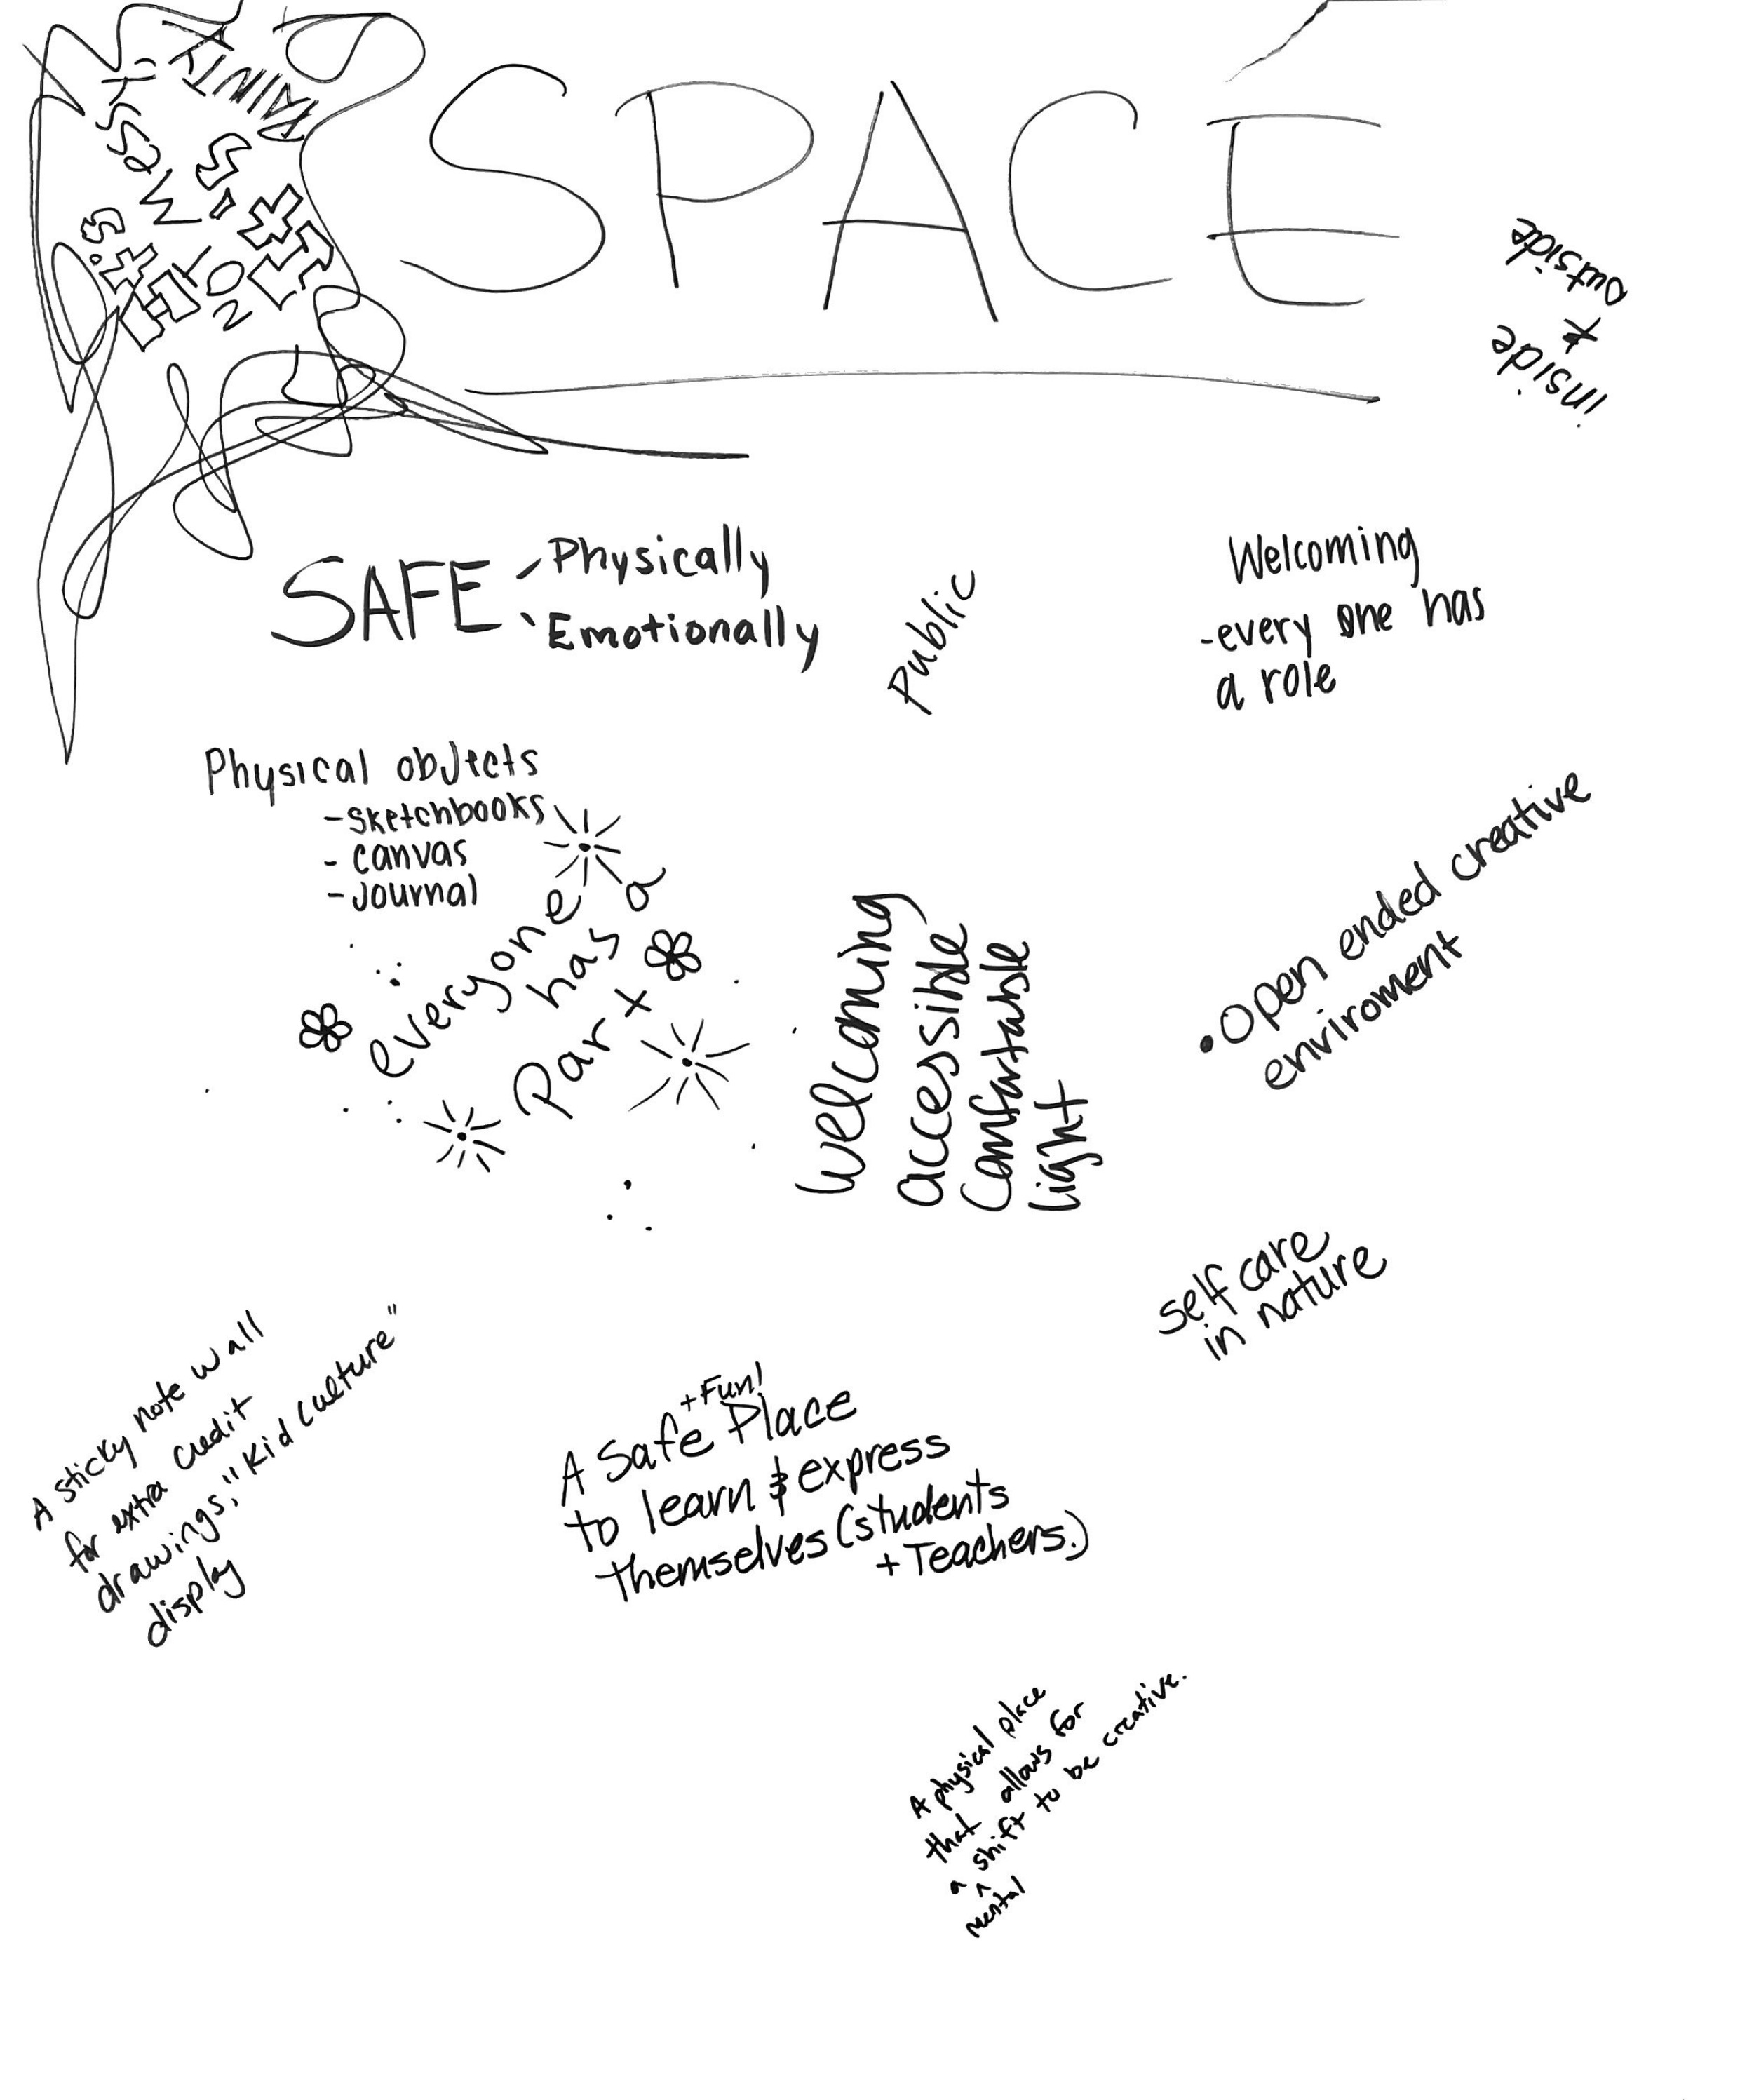 SPACE
outside
+
inside
SAFE - Physically
- Emotionally
Public
Welcoming
-every one has
a role
Physical objects
- Sketchbooks
- canvas
- Journal
everyone
has a
Part
welcoming
accessible
comfortable
light
• Open ended creative
enviroment
Self care
in nature
A sticky note wall
for extra credit
drawings, "Kid culture"
display
+ Fun!
A Safe Place
to learn & express
themselves (students
+ Teachers.)
A physical place
that allows for
a ^ shift to be creative.
mental